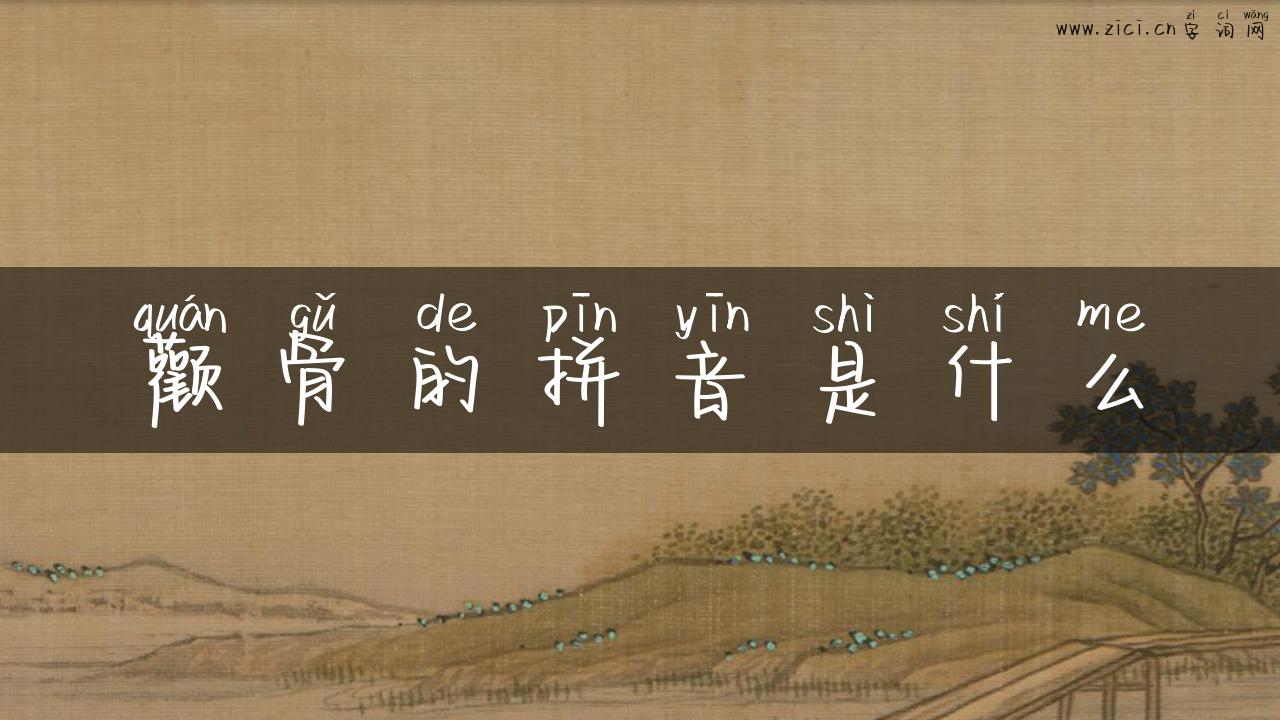 zì cí wǎng
www.zici.cn字词网
quán gǔ de pīn yīn shì shí me
颧骨的拼音是什么